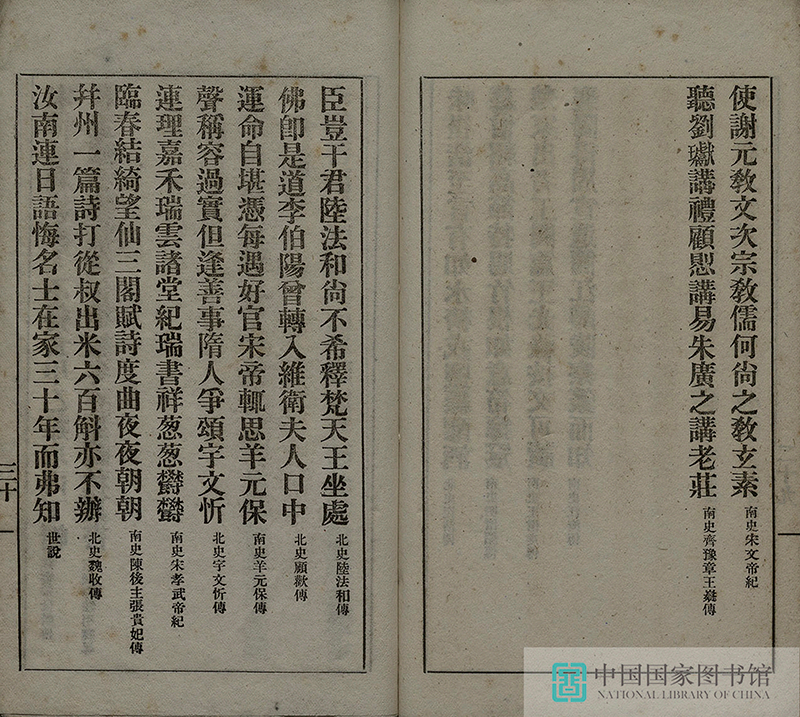 使謝元教文次宗教儒何尙之教玄素 南史宋文帝紀
聽劉瓛講禮顧愳講易朱廣之講老莊 南史齊豫章王嶷傳
臣豈干君陸法和尙不希釋梵天王坐處 北史陸法和傳
佛卽是道李伯陽曾轉入維衛夫人口中 北史顧歡傳
運命自堪憑每遇好官宋帝輒思羊元保 南史羊元保傳
聲稱容過實但逢善事隋人爭頌宇文忻 北史宇文忻傳
連理嘉禾瑞雲諸堂紀瑞書祥葱葱鬱鬱 南史宋孝武帝紀
臨春結綺望仙三閣賦詩度曲夜夜朝朝 南史陳後主張貴妃傳
幷州一篇詩打從叔出米六百斛亦不辦 北史魏收傳
汝南連日語悔名士在家三十年而弗知 世說
三十
中国国家图书馆
NATIONAL LIBRARY OF CHINA